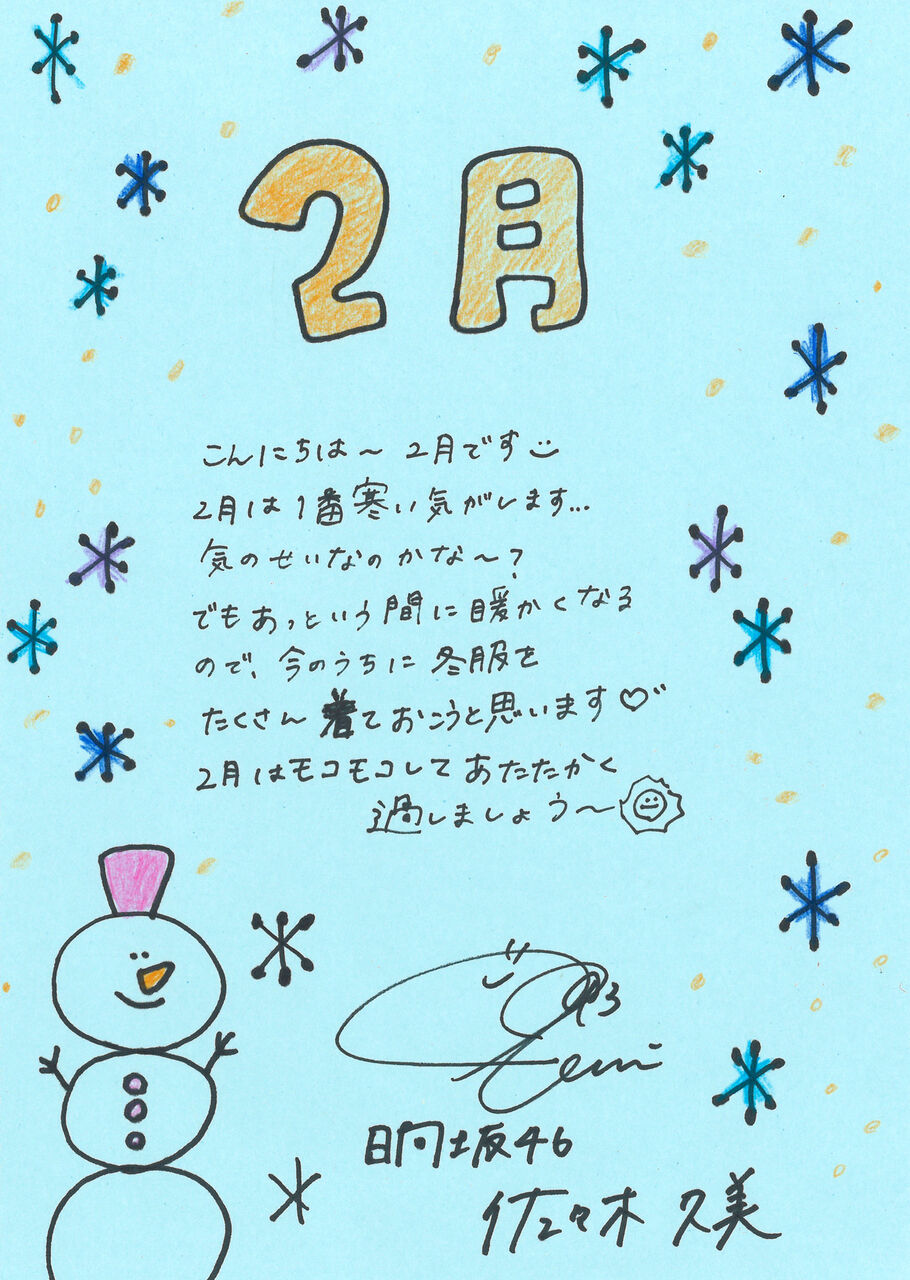 2月
こんにちは〜 2月です
2月は1番寒い気がします...
気のせいなのかな〜?
でもあっという間に暖かくなる
ので、今のうちに冬服を
たくさん着ておこうと思います♡
2月はモコモコしてあたたかく
過しましょう〜
日向坂46
佐々木久美